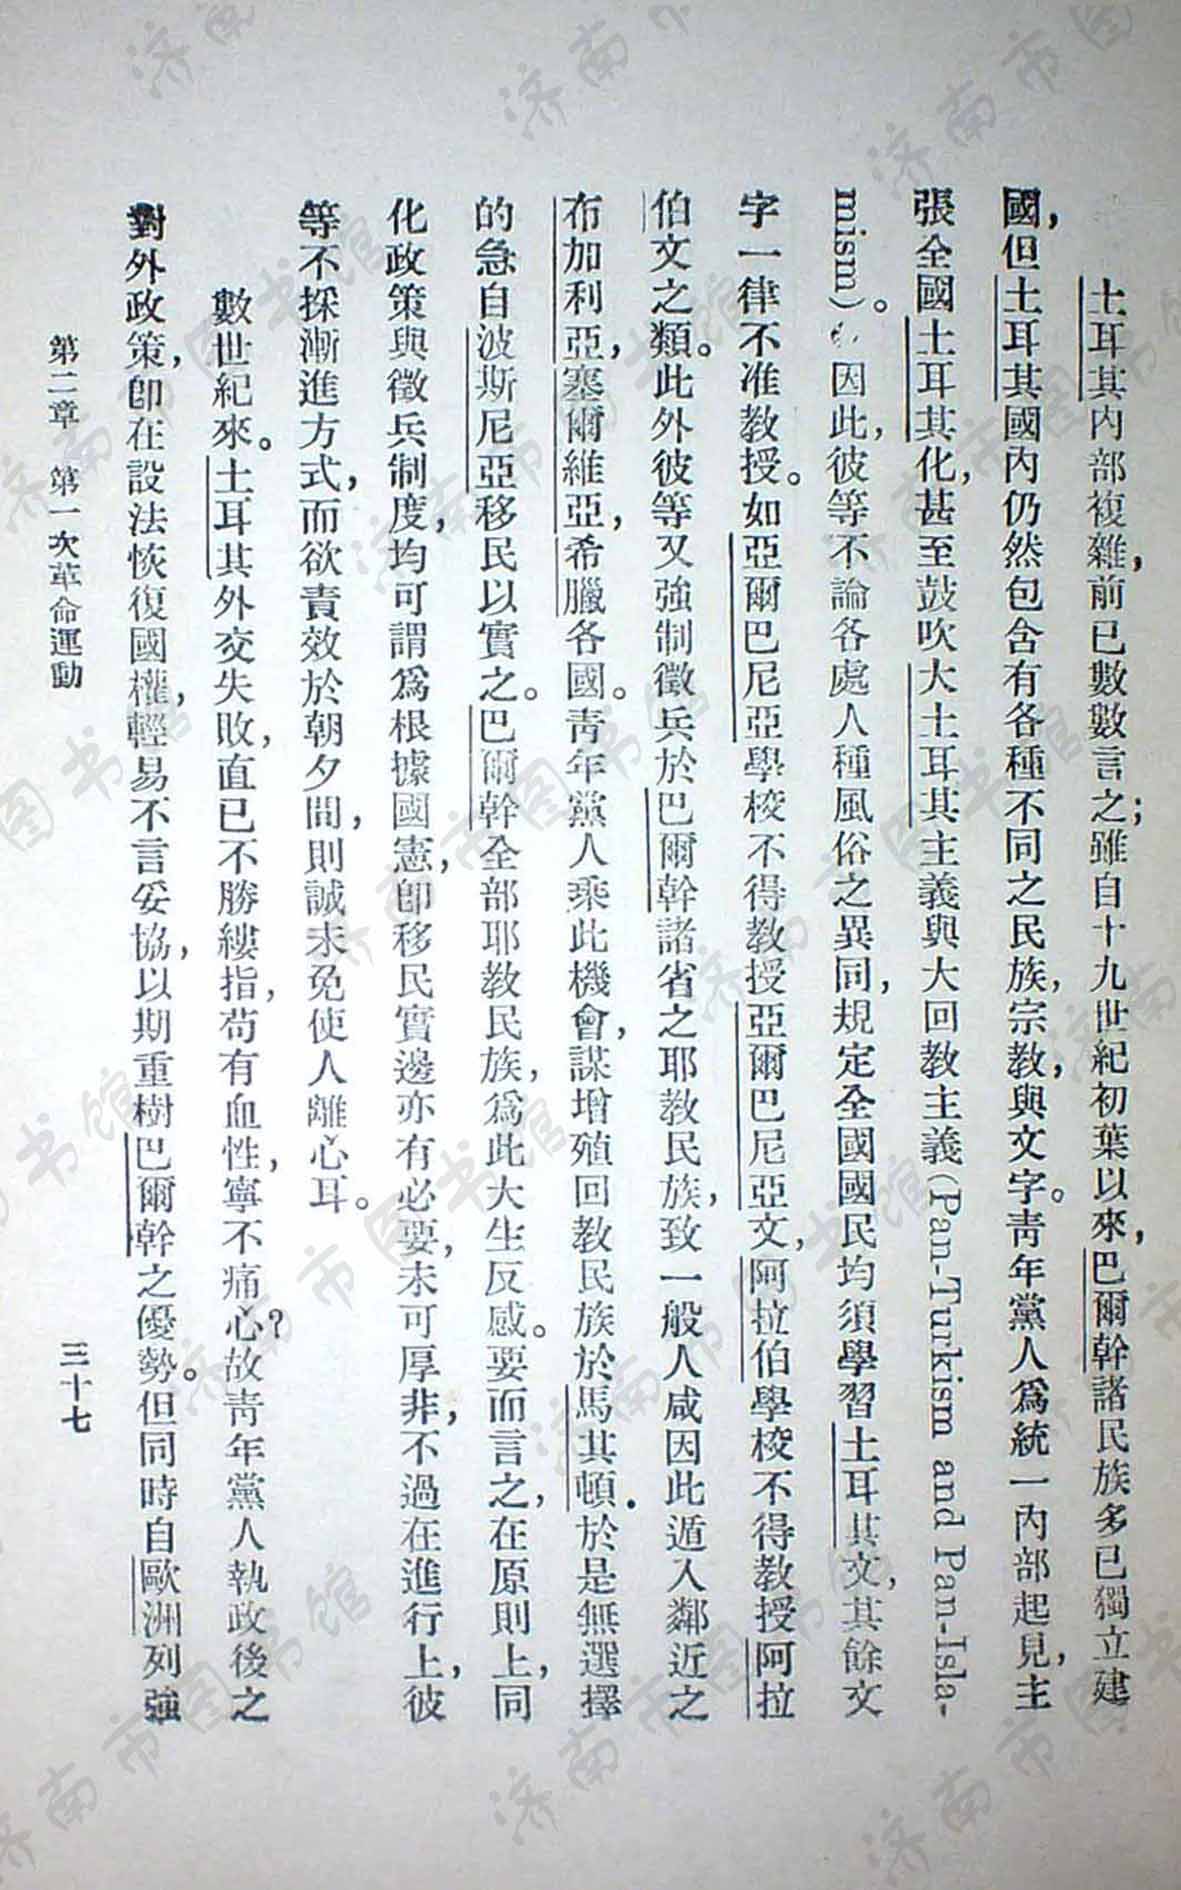 土耳其內部複雜，前已數數言之；雖自十九世紀初葉以來，巴爾幹諸民族多已獨立建
國，但土耳其國內仍然包含有各種不同之民族，宗教，與文字。靑年黨人爲統一內部起見，主
張全國土耳其化，甚至鼓吹大土耳其主義與大回教主義（Pan-Turkism and Pan-Isla-
mism）。因此，彼等不論各處人種風俗之異同，規定全國國民均須學習土耳其文，其餘文
字一律不准教授。如亞爾巴尼亞學校不得教授亞爾巴尼亞文，阿拉伯學校不得教授阿拉
伯文之類。此外彼等又強制徵兵於巴爾幹諸省之耶教民族，致一般人咸因此遁入鄰近之
布加利亞，塞爾維亞，希臘各國。靑年黨人乘此機會，謀增殖回教民族於馬其頓．於是無選擇
的急自波斯尼亞移民以實之。巴爾幹全部耶教民族，爲此大生反感。要而言之，在原則上，同
化政策與徵兵制度，均可謂爲根據國憲，卽移民實邊亦有必要，未可厚非，不過在進行上，彼
等不採漸進方式，而欲責效於朝夕間，則誠未免使人離心耳。
數世紀來。土耳其外交失敗，直已不勝縷指，苟有血性，寧不痛心？故靑年黨人執政後之
對外政策，卽在設法恢復國權，輕易不言妥協，以期重樹巴爾幹之優勢。但同時自歐洲列強
第二章 第一次革命運動
三十七
济南市图书馆